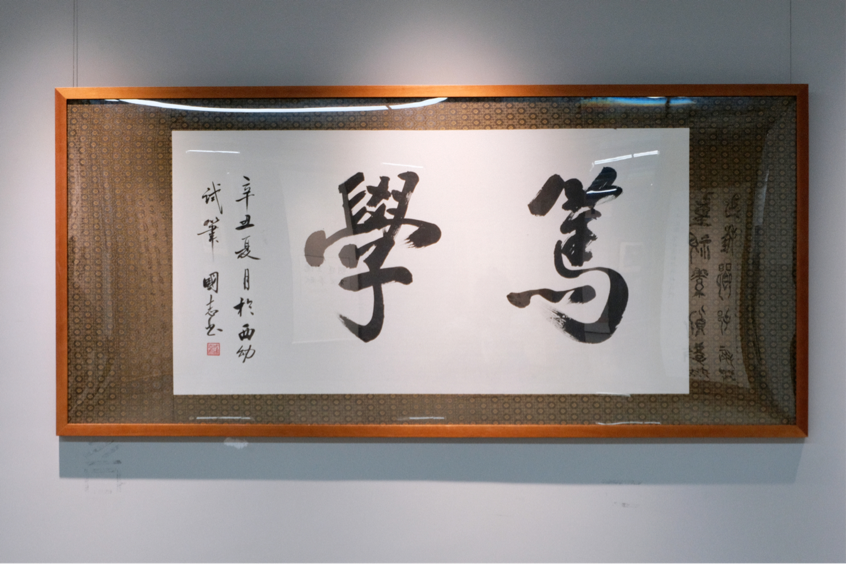 篤學
辛丑夏月於西幼
試筆 國志书